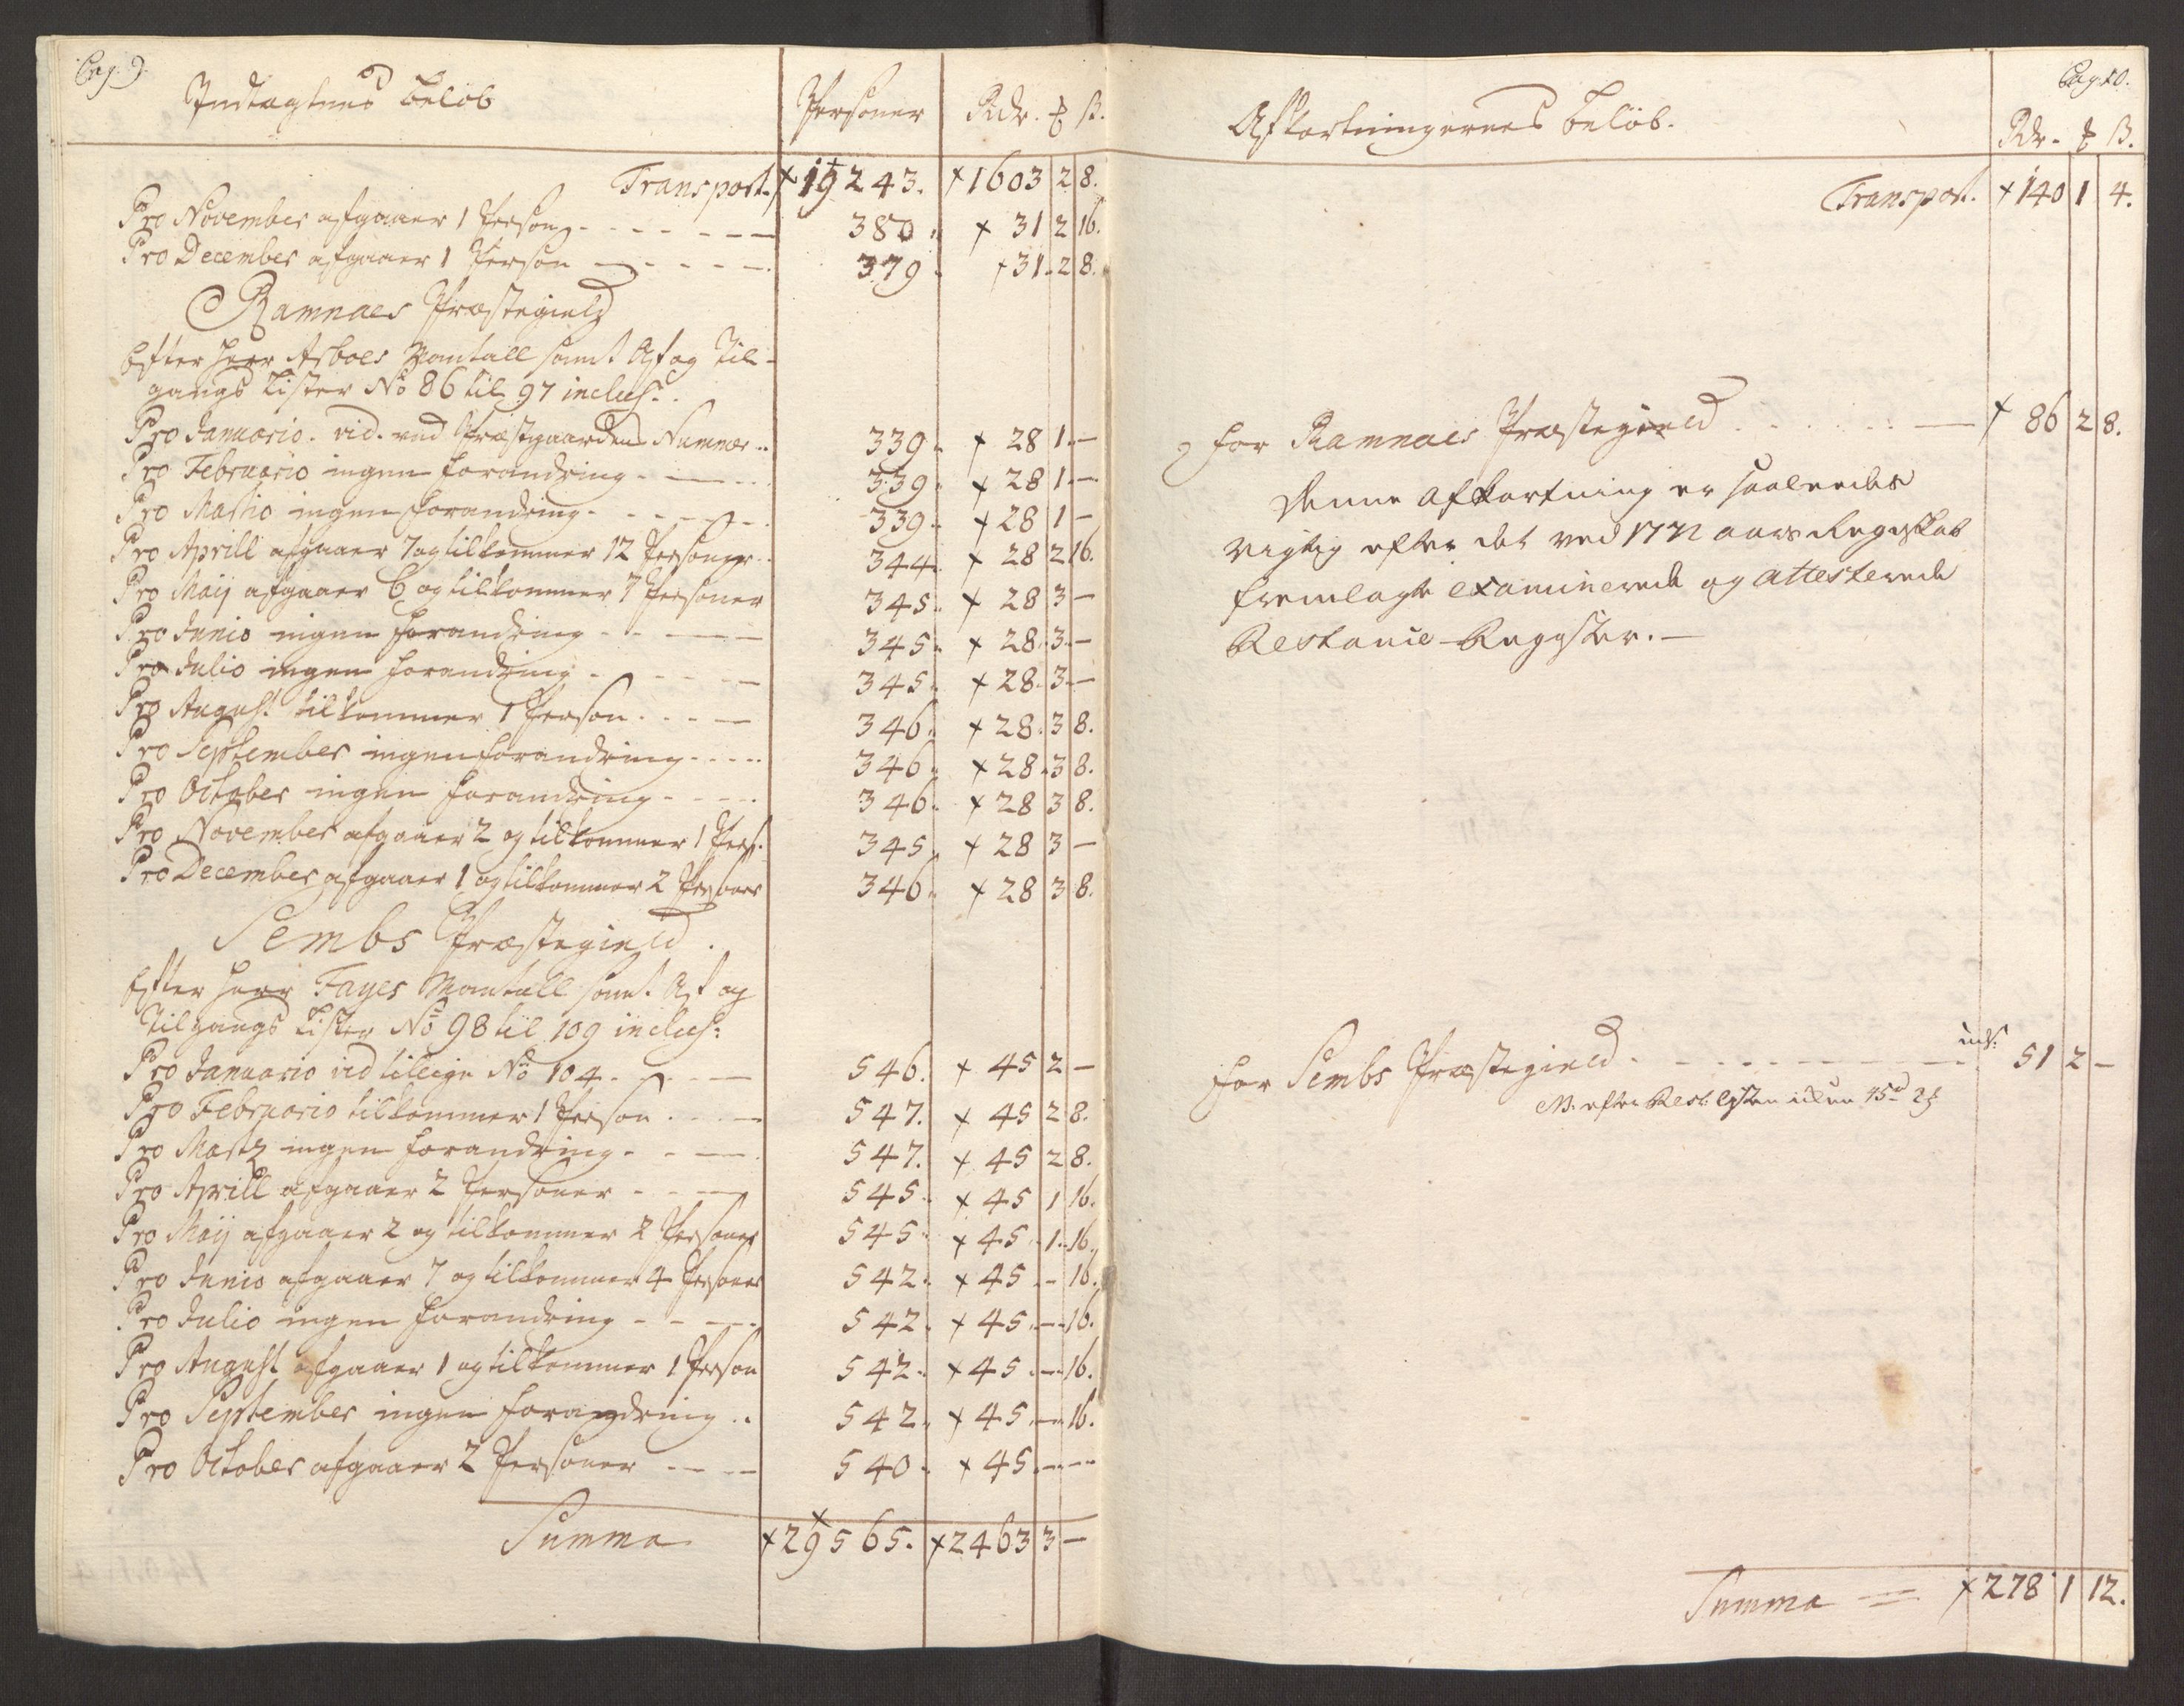 Pag. 9.
Indtægtens beløb Personer Rdr. ℔ ß.
Transport. × 19243. × 1603 2 8.
Pro November afgaaer 1 Person - - - - - - - 380. × 31 2 16.
Pro December afgaaer 1 Person - - - - - 379. × 31 - 2 8.
Ramnæs Præstegield
Efter Herr Asboes Mantall samt Af og Til-
gangs Lister No 86 til 97 inclus:
Pro Januario. vid. ved Præstgaardens Nummer .. 339. × 28 1 -
Pro Februario ingen forandring - - - - 339. × 28 1 -
Pro Martio ingen forandring - - - - - - 339. × 28 1 -
Pro Aprill afgaaer 7 og tilkommer 12 Personer .. 344. × 28 2 16.
Pro Maij afgaaer 6 og tilkommer 7 Personer 345. × 28 3 -
Pro Junio ingen forandring - - - - - 345. × 28. 3. -
Pro Julio ingen forandring - - - - - 345. × 28. 3. -
Pro August tilkommer 1 Person - - - - 346. × 28. 3 8.
Pro September ingen forandring - - - - - 346. × 28. 3 8.
Pro October ingen forandring - - - - 346. × 28 3 8.
Pro November afgaaer 2 og tilkommer 1 Pers. 345. × 28 3 -
Pro December afgaaer 1 og tilkommer 2 Personer 346. × 28 3 8.
Sembs Præstegield.
Efter Herr Fayes Mantall samt Af og
Tilgangs Lister No 98 til 109 inclus:
Pro Januario vid tillige No 104 - - - - 546. × 45 2 -
Pro Februario tilkommer 1 Person - - - - 547. × 45 2 8.
Pro Martz ingen forandring - - - - 547. × 45 2 8.
Pro Aprill afgaaer 2 Personer - - - - 545. × 45 1 16.
Pro Maij afgaaer 2 og tilkommer 2 Personer 545. × 45. 1. 16.
Pro Junio afgaaer 7 og tilkommer 4 Personer 542. × 45. - 16.
Pro Julio ingen forandring - - - - 542. × 45. - 16.
Pro August afgaaer 1 og tilkommer 1 Person 542. × 45. - 16.
Pro September ingen forandring .. 542. × 45. - 16.
Pro October afgaaer 2 Personer - - - - 540. × 45. - -
Summa × 29565. × 2463 3 -
Pag. 10.
Afkortningernes beløb. Rdr. ℔ ß.
Transport. × 140 1 4.
For Ramnæs Præstegield . . . . . . - × 86 2 8.
Denne afkortning er saaledes
rigtig efter det ved 1772 aars Regnskab
fremlagte examinerede og attesterede
Restance-Register. -
For Sembs Præstegield - - - - - - - - 51 2 -
NB. efter Rest. Listen
Summa = × 278 1 12.